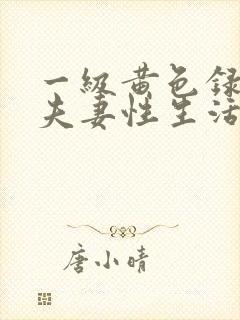 一级黄色録
夫妻性生活
唐小晴